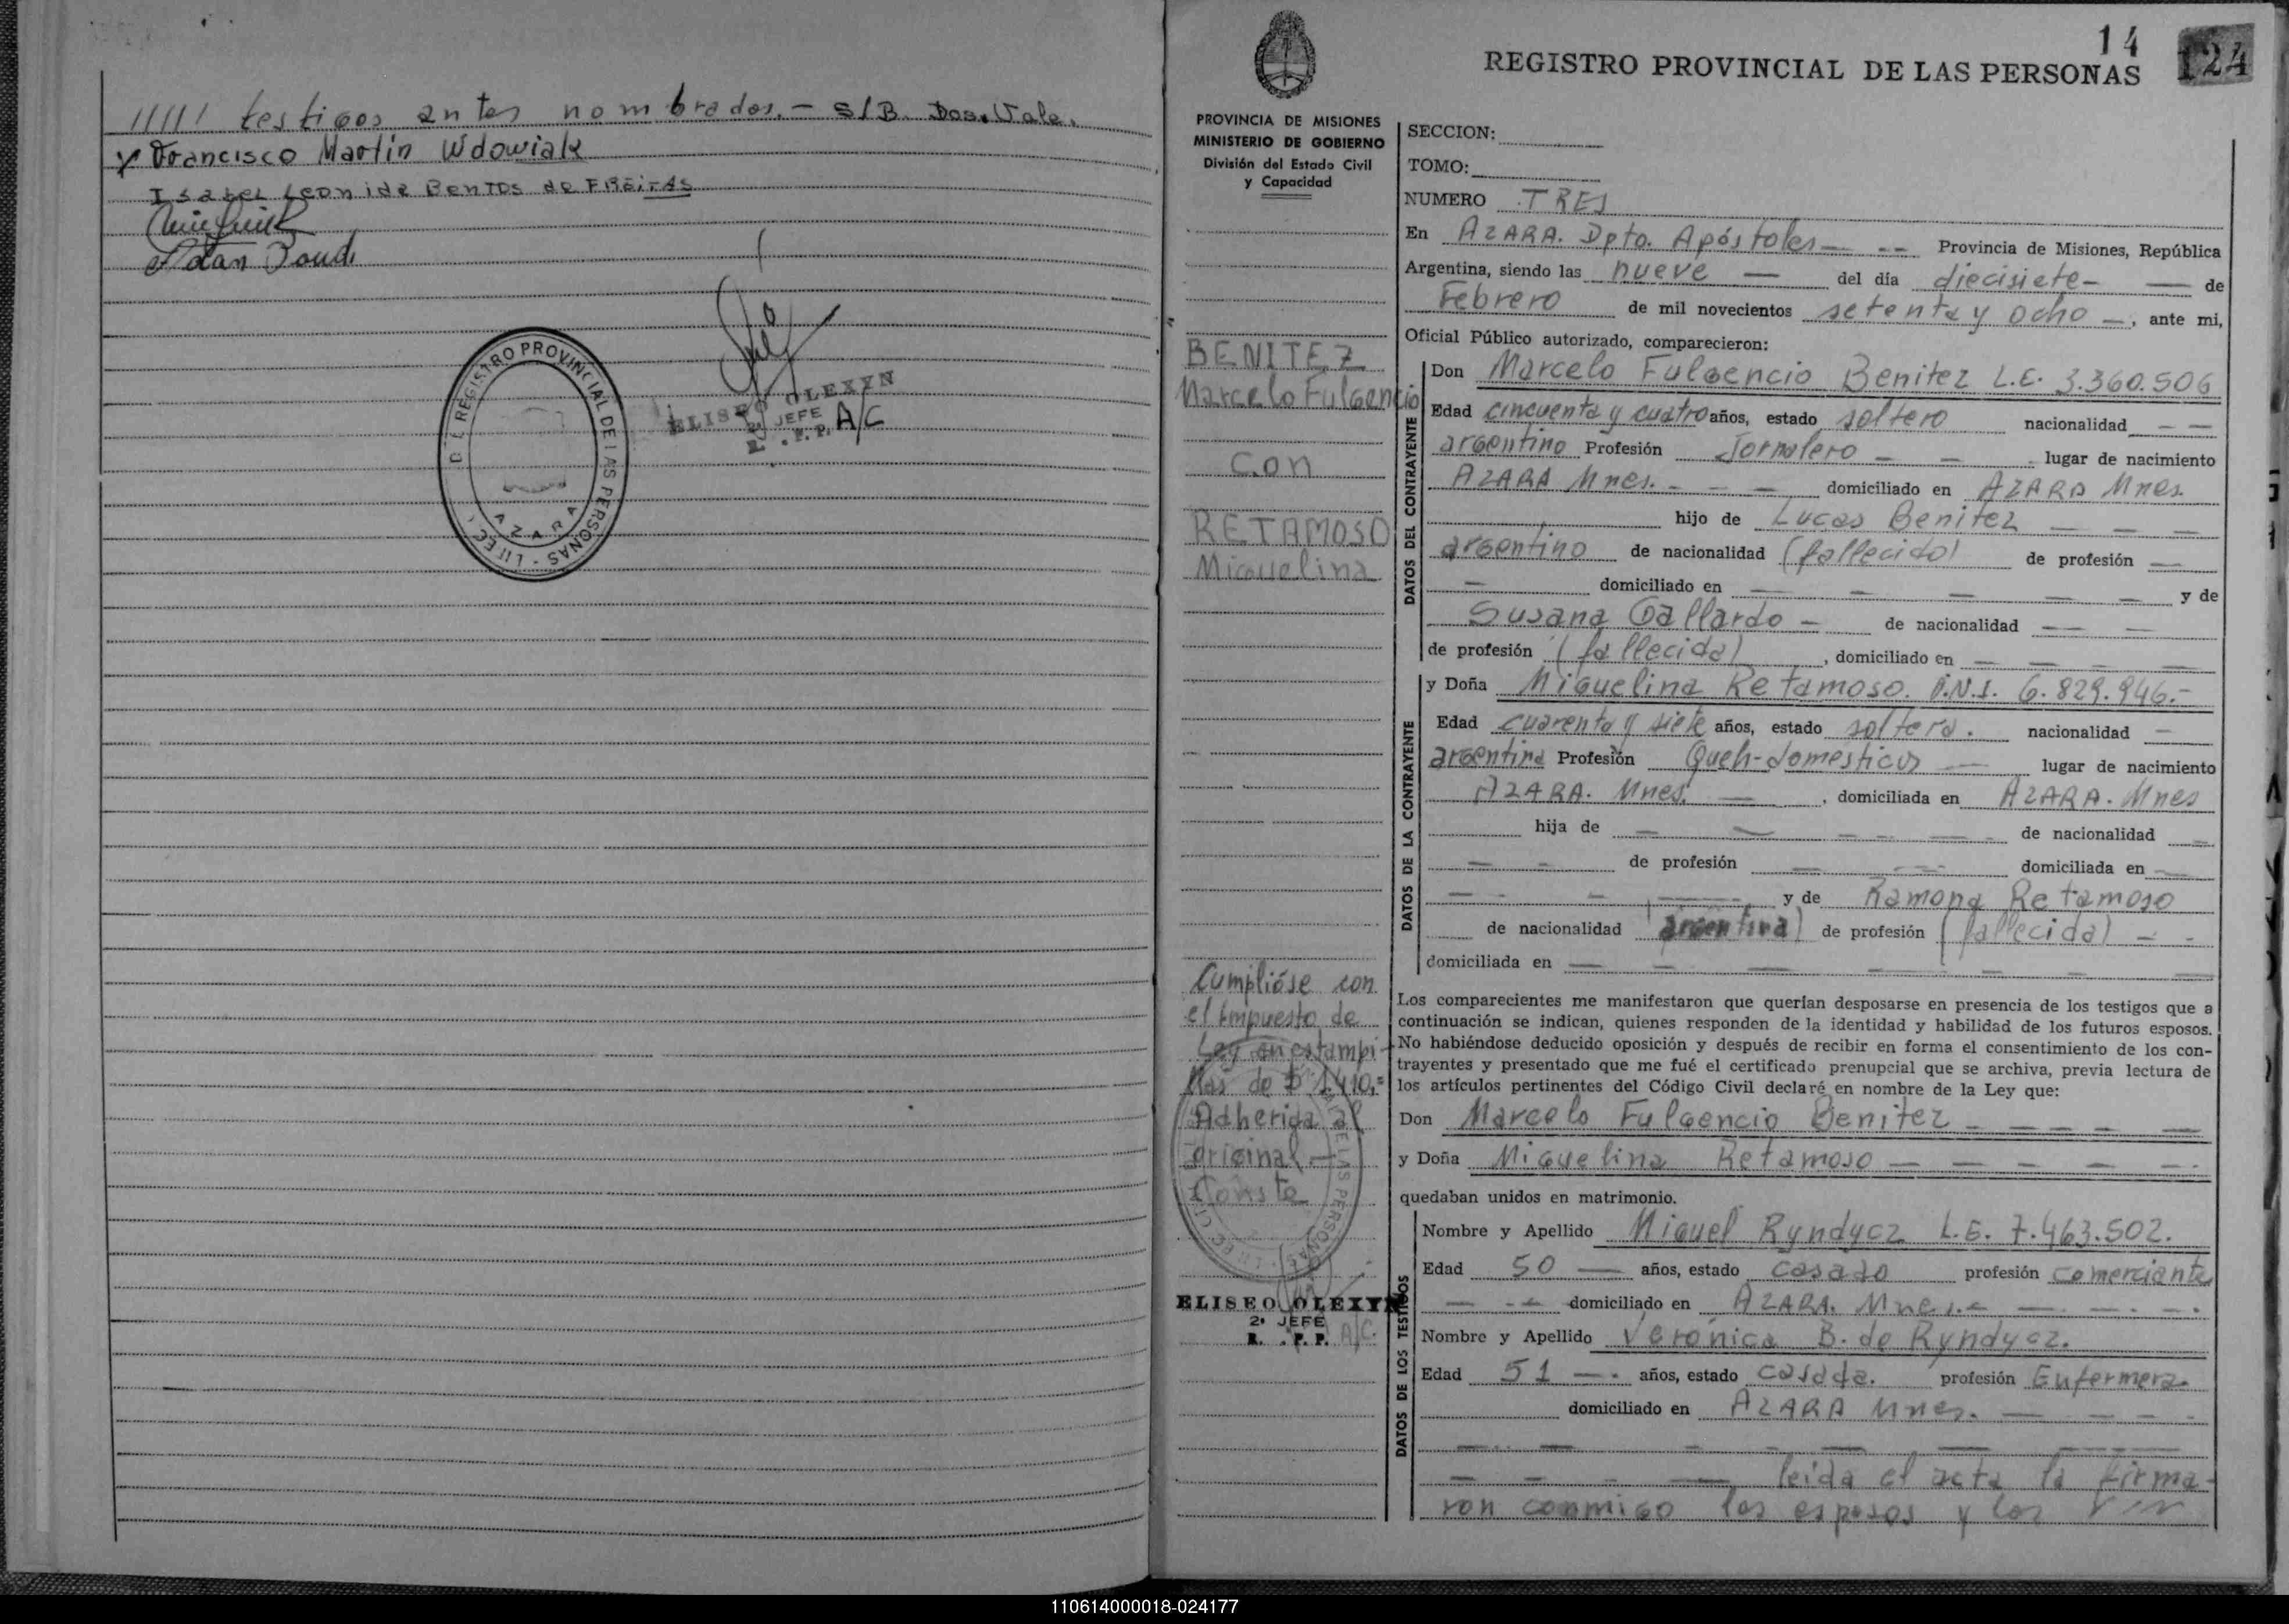 ////// testigos antes nombrados.- S/B. Dos. Vale.
Francisco Martin Wdowiak
Isabel Leonida Bentos de FREITAS
REGISTRO PROVINCIAL DE LAS PERSONAS
AZARA
ELISEO OLEXYN
2º JEFE A/C
R. . P. P.
14
124
REGISTRO PROVINCIAL DE LAS PERSONAS
PROVINCIA DE MISIONES
MINISTERIO DE GOBIERNO
División del Estado Civil
y Capacidad
BENITEZ
Marcelo Fulgencio
con
RETAMOSO
Miguelina
Cumplióse con
el impuesto de
Ley en estampi-
llas de $ 1.410,=
Adherida al
original.-
Conste
ELISEO OLEXYN
2º JEFE
R. . P. P. A/C.
SECCION:
TOMO:
NUMERO TRES
En AZARA. Dpto. Apóstoles — -- Provincia de Misiones, República
Argentina, siendo las nueve — del día diecisiete- — de
Febrero de mil novecientos setenta y ocho —, ante mi,
Oficial Público autorizado, comparecieron:
DATOS DEL CONTRAYENTE
Don Marcelo Fulgencio Benitez L.E. 3.360.506
Edad cincuenta y cuatro años, estado soltero nacionalidad — —
argentino Profesión Jornalero — — lugar de nacimiento
AZARA Mnes. - - — domiciliado en AZARA Mnes.
hijo de Lucas Benitez — — —
argentino de nacionalidad (fallecido) de profesión —
— domiciliado en — — — — — y de
Susana Gallardo — de nacionalidad — —
de profesión (fallecida), domiciliado en — — — —
DATOS DE LA CONTRAYENTE
y Doña Miguelina Retamoso. D.N.I. 6.829.946.-
Edad cuarenta y siete años, estado soltera. nacionalidad —
argentina Profesión Queh-domesticos — lugar de nacimiento
AZARA. Mnes. —, domiciliada en AZARA. Mnes
hija de — — — — — de nacionalidad —
— — de profesión — — domiciliada en —
— — — y de Ramona Retamoso
de nacionalidad (argentina) de profesión (fallecida) — -
domiciliada en — — — — — — —
Los comparecientes me manifestaron que querían desposarse en presencia de los testigos que a
continuación se indican, quienes responden de la identidad y habilidad de los futuros esposos.
No habiéndose deducido oposición y después de recibir en forma el consentimiento de los con-
trayentes y presentado que me fué el certificado prenupcial que se archiva, previa lectura de
los artículos pertinentes del Código Civil declaré en nombre de la Ley que:
Don Marcelo Fulgencio Benitez - — — — —
y Doña Miguelina Retamoso — — — — —
quedaban unidos en matrimonio.
DATOS DE LOS TESTIGOS
Nombre y Apellido Miguel Ryndycz L.E. 7.463.502.
Edad 50 — años, estado casado profesión comerciante
— -- domiciliado en AZARA. Mnes.- — — — -.
Nombre y Apellido Verónica B. de Ryndycz.
Edad 51 —. años, estado casada. profesión Enfermera
domiciliado en AZARA Mnes. — — — -
— — - - — — ——
— — - — leída el acta la firma-
ron conmigo los esposos y los ///
110614000018-024177